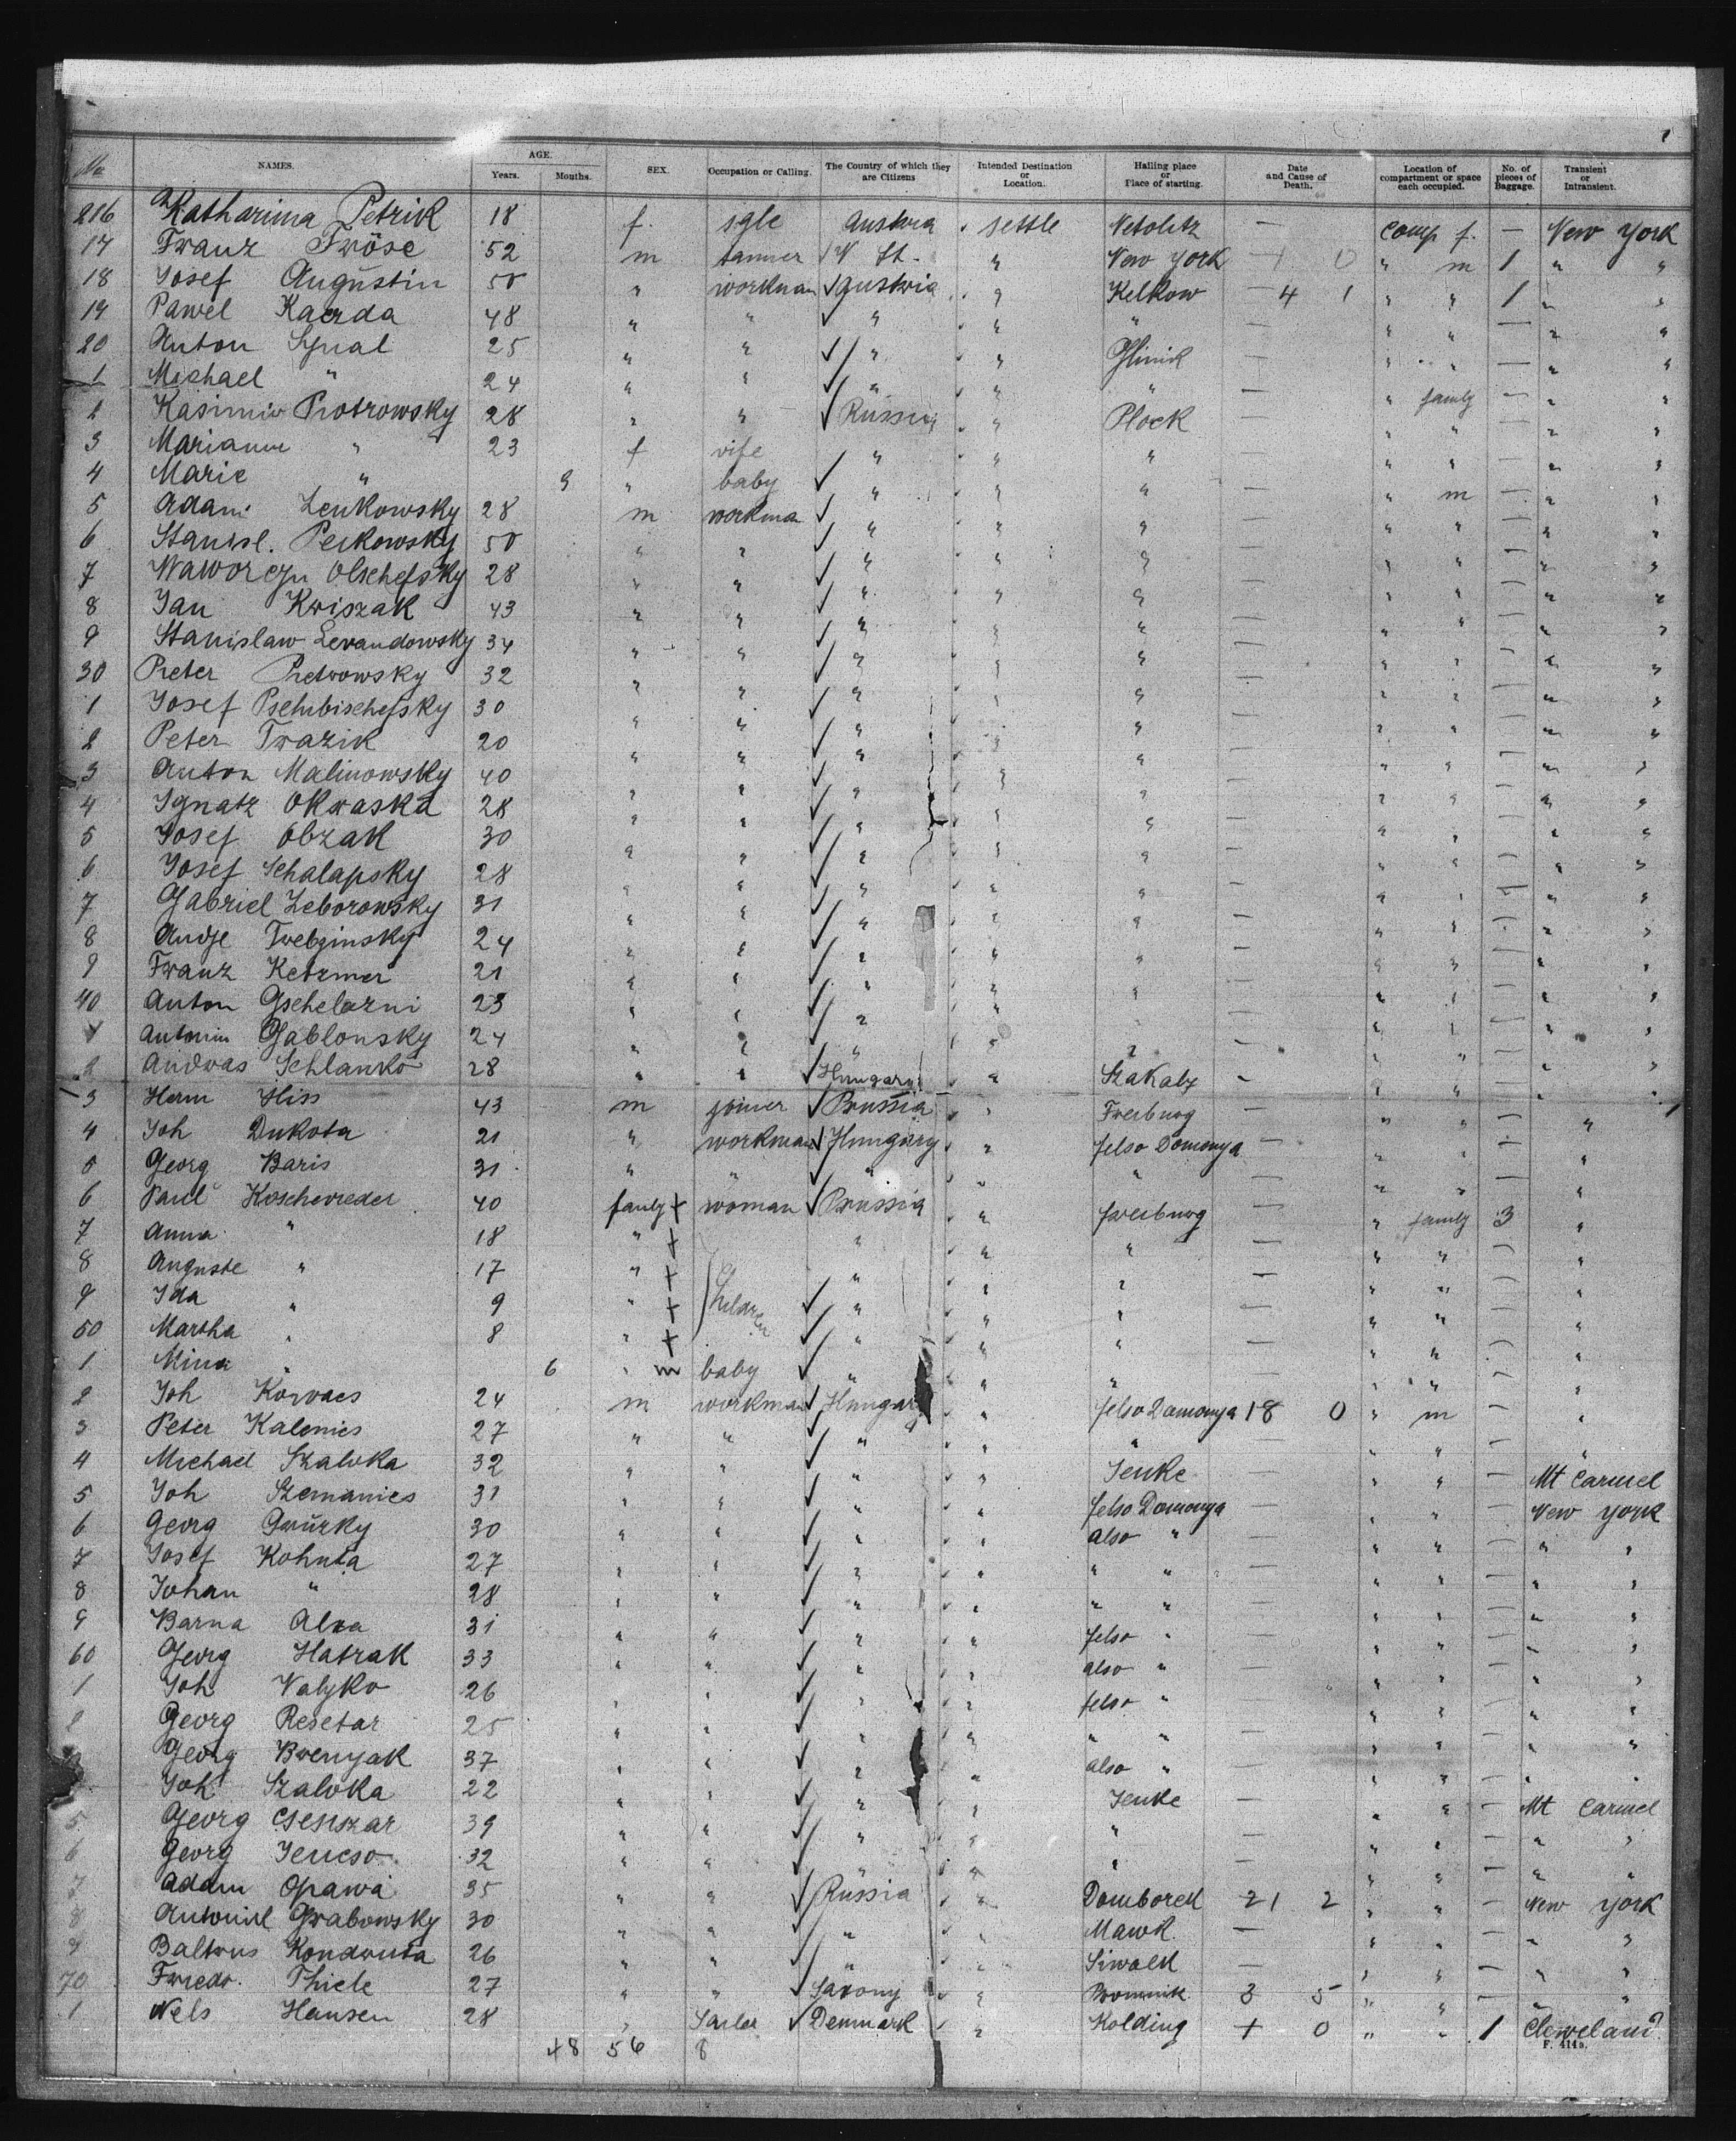 No. NAMES. AGE. Years. Months. SEX. Occupation or Calling. The Country of which they are Citizens Intended Destination or Location. Hailing place or Place of starting. Date and Cause of Death. Location of compartment or space each occupied. No. of pieces of Baggage. Transient or Intransient.
216 Katharina Petrik 18 f. sgle Austria settle Netolitz — Comp f. — New York
17 Franz Fröse 52 m tanner N St. " New York — 1 0 " m 1 " "
18 Josef Augustin 50 " workman Austria " Kelkow — 4 1 " " 1 " "
19 Pawel Kaerda 48 " " " " " — " " — " "
20 Anton Synal 25 " " " " Glinik — " " — " "
1 Michael " 24 " " " " " — " " — " "
2 Kasimir Piotrowsky 28 " " Russia " Plock — " family — " "
3 Marianne " 23 f wife " " " — " " — " "
4 Marie " 9 " baby " " " — " " — " "
5 Adam Zenkowsky 28 m workman " " " — " m — " "
6 Stanisl. Peikowsky 50 " " " " " — " " — " "
7 Waworczn Olschefsky 28 " " " " " — " " — " "
8 Jan Kwiszak 43 " " " " " — " " — " "
9 Stanislaw Levandowsky 34 " " " " " — " " — " "
30 Peter Pietrowsky 32 " " " " " — " " — " "
1 Josef Pschibischefsky 30 " " " " " — " " — " "
2 Peter Trazik 20 " " " " " — " " — " "
3 Anton Malinowsky 40 " " " " " — " " — " "
4 Ignatz Okraska 28 " " " " " — " " — " "
5 Josef Obzak 30 " " " " " — " " — " "
6 Josef Schalapsky 28 " " " " " — " " — " "
7 Gabriel Zeborowsky 31 " " " " " — " " — " "
8 Andje Trebginsky 24 " " " " " — " " — " "
9 Franz Ketzmer 21 " " " " " — " " — " "
40 Anton Gschelarni 23 " " " " " — " " — " "
1 Antonin Jablonsky 24 " " " " " — " " — " "
2 Andreas Schlanko 28 " " Hungary " Szakaly — " " — " "
3 Herm Hiss 43 m joiner Prussia " Freiburg — " " — "
4 Joh Dukota 21 " workman Hungary " felso Domonya — " " — "
5 Georg Baris 31 " " " " " — " " — "
6 Paul Koschevreder 40 family + woman Prussia " freiburg — " family 3 "
7 Anna " 18 " + " " " — " " — "
8 Auguste " 17 " + children " " " — " " — "
9 Ida " 9 " + " " " — " " — "
50 Martha " 8 " + " " " — " " — "
1 Mina " 6 " m baby " " " — " " — "
2 Joh Korvacs 24 m workman Hungary " felso Domonya 18 0 " m — "
3 Peter Kalenics 27 " " " " " — " " — "
4 Michael Szalvka 32 " " " " Jenke — " " — Mt Carmel
5 Joh Szemanies 31 " " " " felso Domonya — " " — New York
6 Georg Gwurky 30 " " " " also " — " " — " "
7 Josef Kohuta 27 " " " " " " — " " — " "
8 Johan " 28 " " " " " " — " " — " "
9 Barna Alexa 31 " " " " felso " — " " — " "
60 Georg Hatrak 33 " " " " also " — " " — " "
1 Joh Valyko 26 " " " " felso " — " " — " "
2 Georg Resetar 25 " " " " " " — " " — " "
Georg Brenyak 37 " " " " also " — " " — " "
Joh Szalvka 22 " " " " Jenke — " " — Mt Carmel
5 Georg Csenszar 39 " " " " " — " " — " "
6 Georg Jencso 32 " " " " " — " " — " "
7 Adam Opawa 35 " " Russia " Domborek 21 2 " " — New York
8 Grabowsky 30 " " " " Mawk — " " — " "
9 Baltrus Kondruta 26 " " " " Siwalk — " " — " "
70 Friedr. Thiele 27 " " Saxony " 3 5 " " — " "
1 Nels Hansen 28 " Sailor Denmark " Kolding + 0 " " 1 Cleveland
48 56 8
F. 414a.